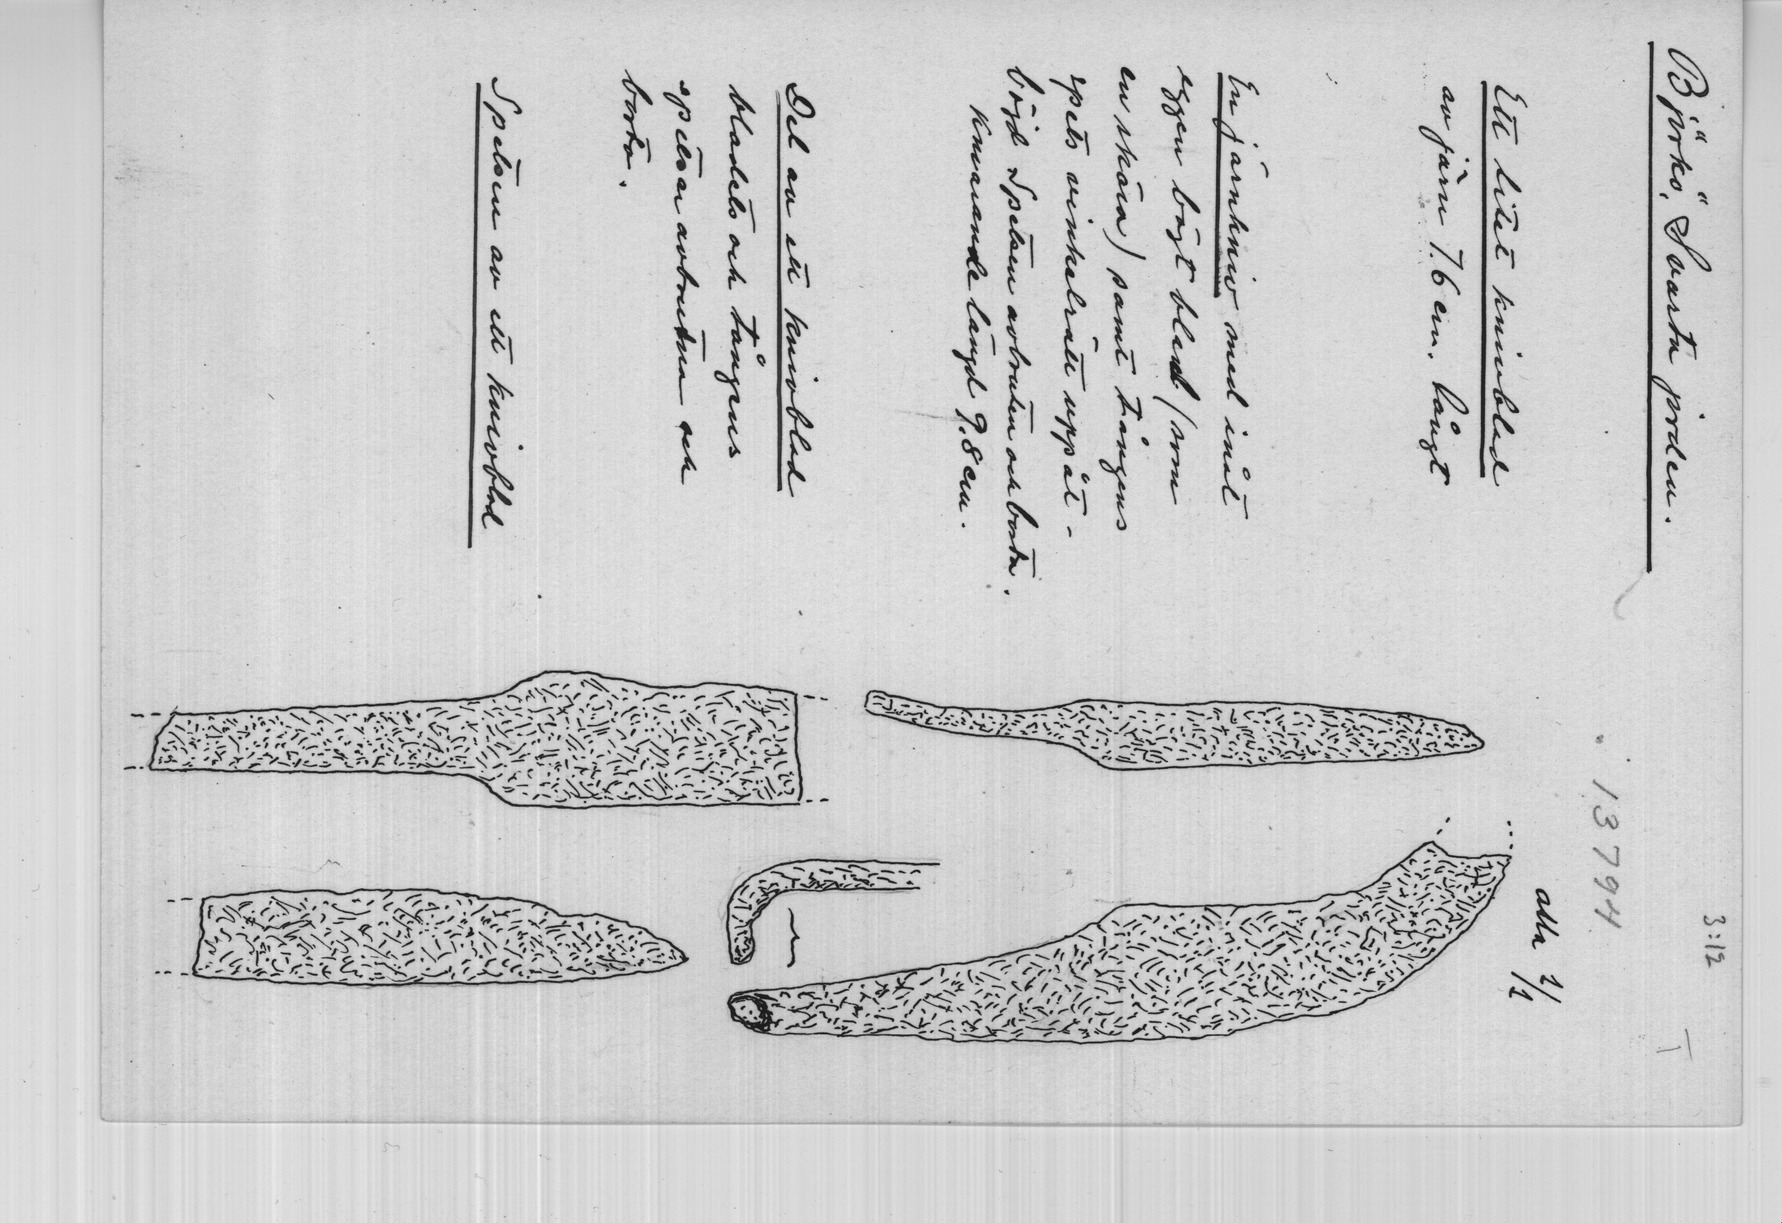 3:12
Björkö, Svarta jorden.
I
13794
alla 1/1
Ett litet knivblad
av järn 7.6 cm. långt
En järnkniv med inåt
eggen böjt blad (som
en skära) samt tångens
spets vinkelrätt uppåt-
böjd Spetsen avbruten och borta.
Knivarande längd 9.8 cm.
Del av ett knivblad
bladets och tångens
spetsar avbrutna och
borta.
Spetsen av ett knivblad